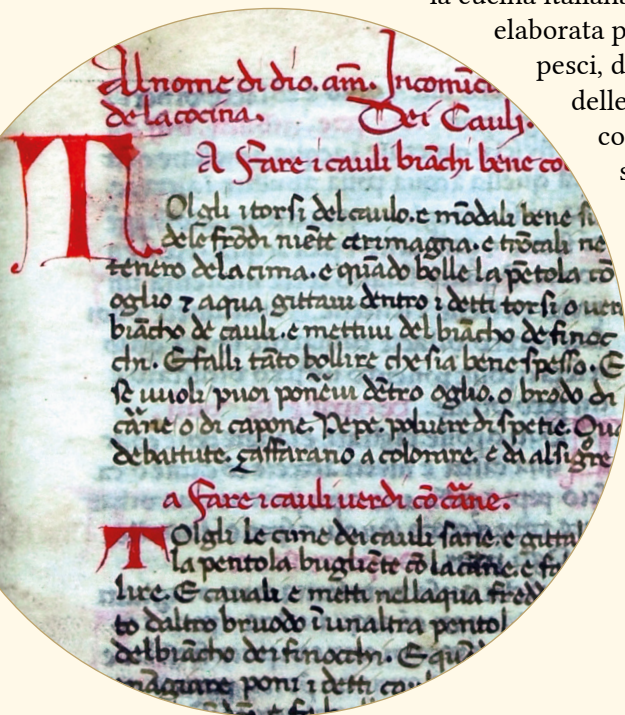 la cucina italiana
elaborata p
pesci, d
delle
co
s
Al nome di dio. am̄. Incomīc
de la cocina. Dei Cauli.
A Fare i cauli biāchi bene co
TOlgli i torsi del caulo. e mōdali bene si
de le frōdi niēte ci rimagna. e trōcali ne
tenero dela cima. e quādo bolle la pētola cō
oglio ⁊ aqua gittaui dentro i detti torsi o uer
biācho de cauli. e mettiui del biācho de finoc
chi. E falli tāto bollire che sia bene spesso. E
se uuoli puoi ponēui dētro oglio. o brodo di
cārne o di capone. Pepe. poluere di spetie. Oua
debattute. çaffarano a colorare. e da al signe
a Fare i cauli uerdi cō cārne.
TOlgli le cime dei cauli sane. e gittal
la pentola bugliēte cō la carne. e fa
lire. E cauali e metti nellaqua fred
to daltro bruodo ī unaltra pentol
del biācho dei finocchi. E quādo
magiare poni i detti cau